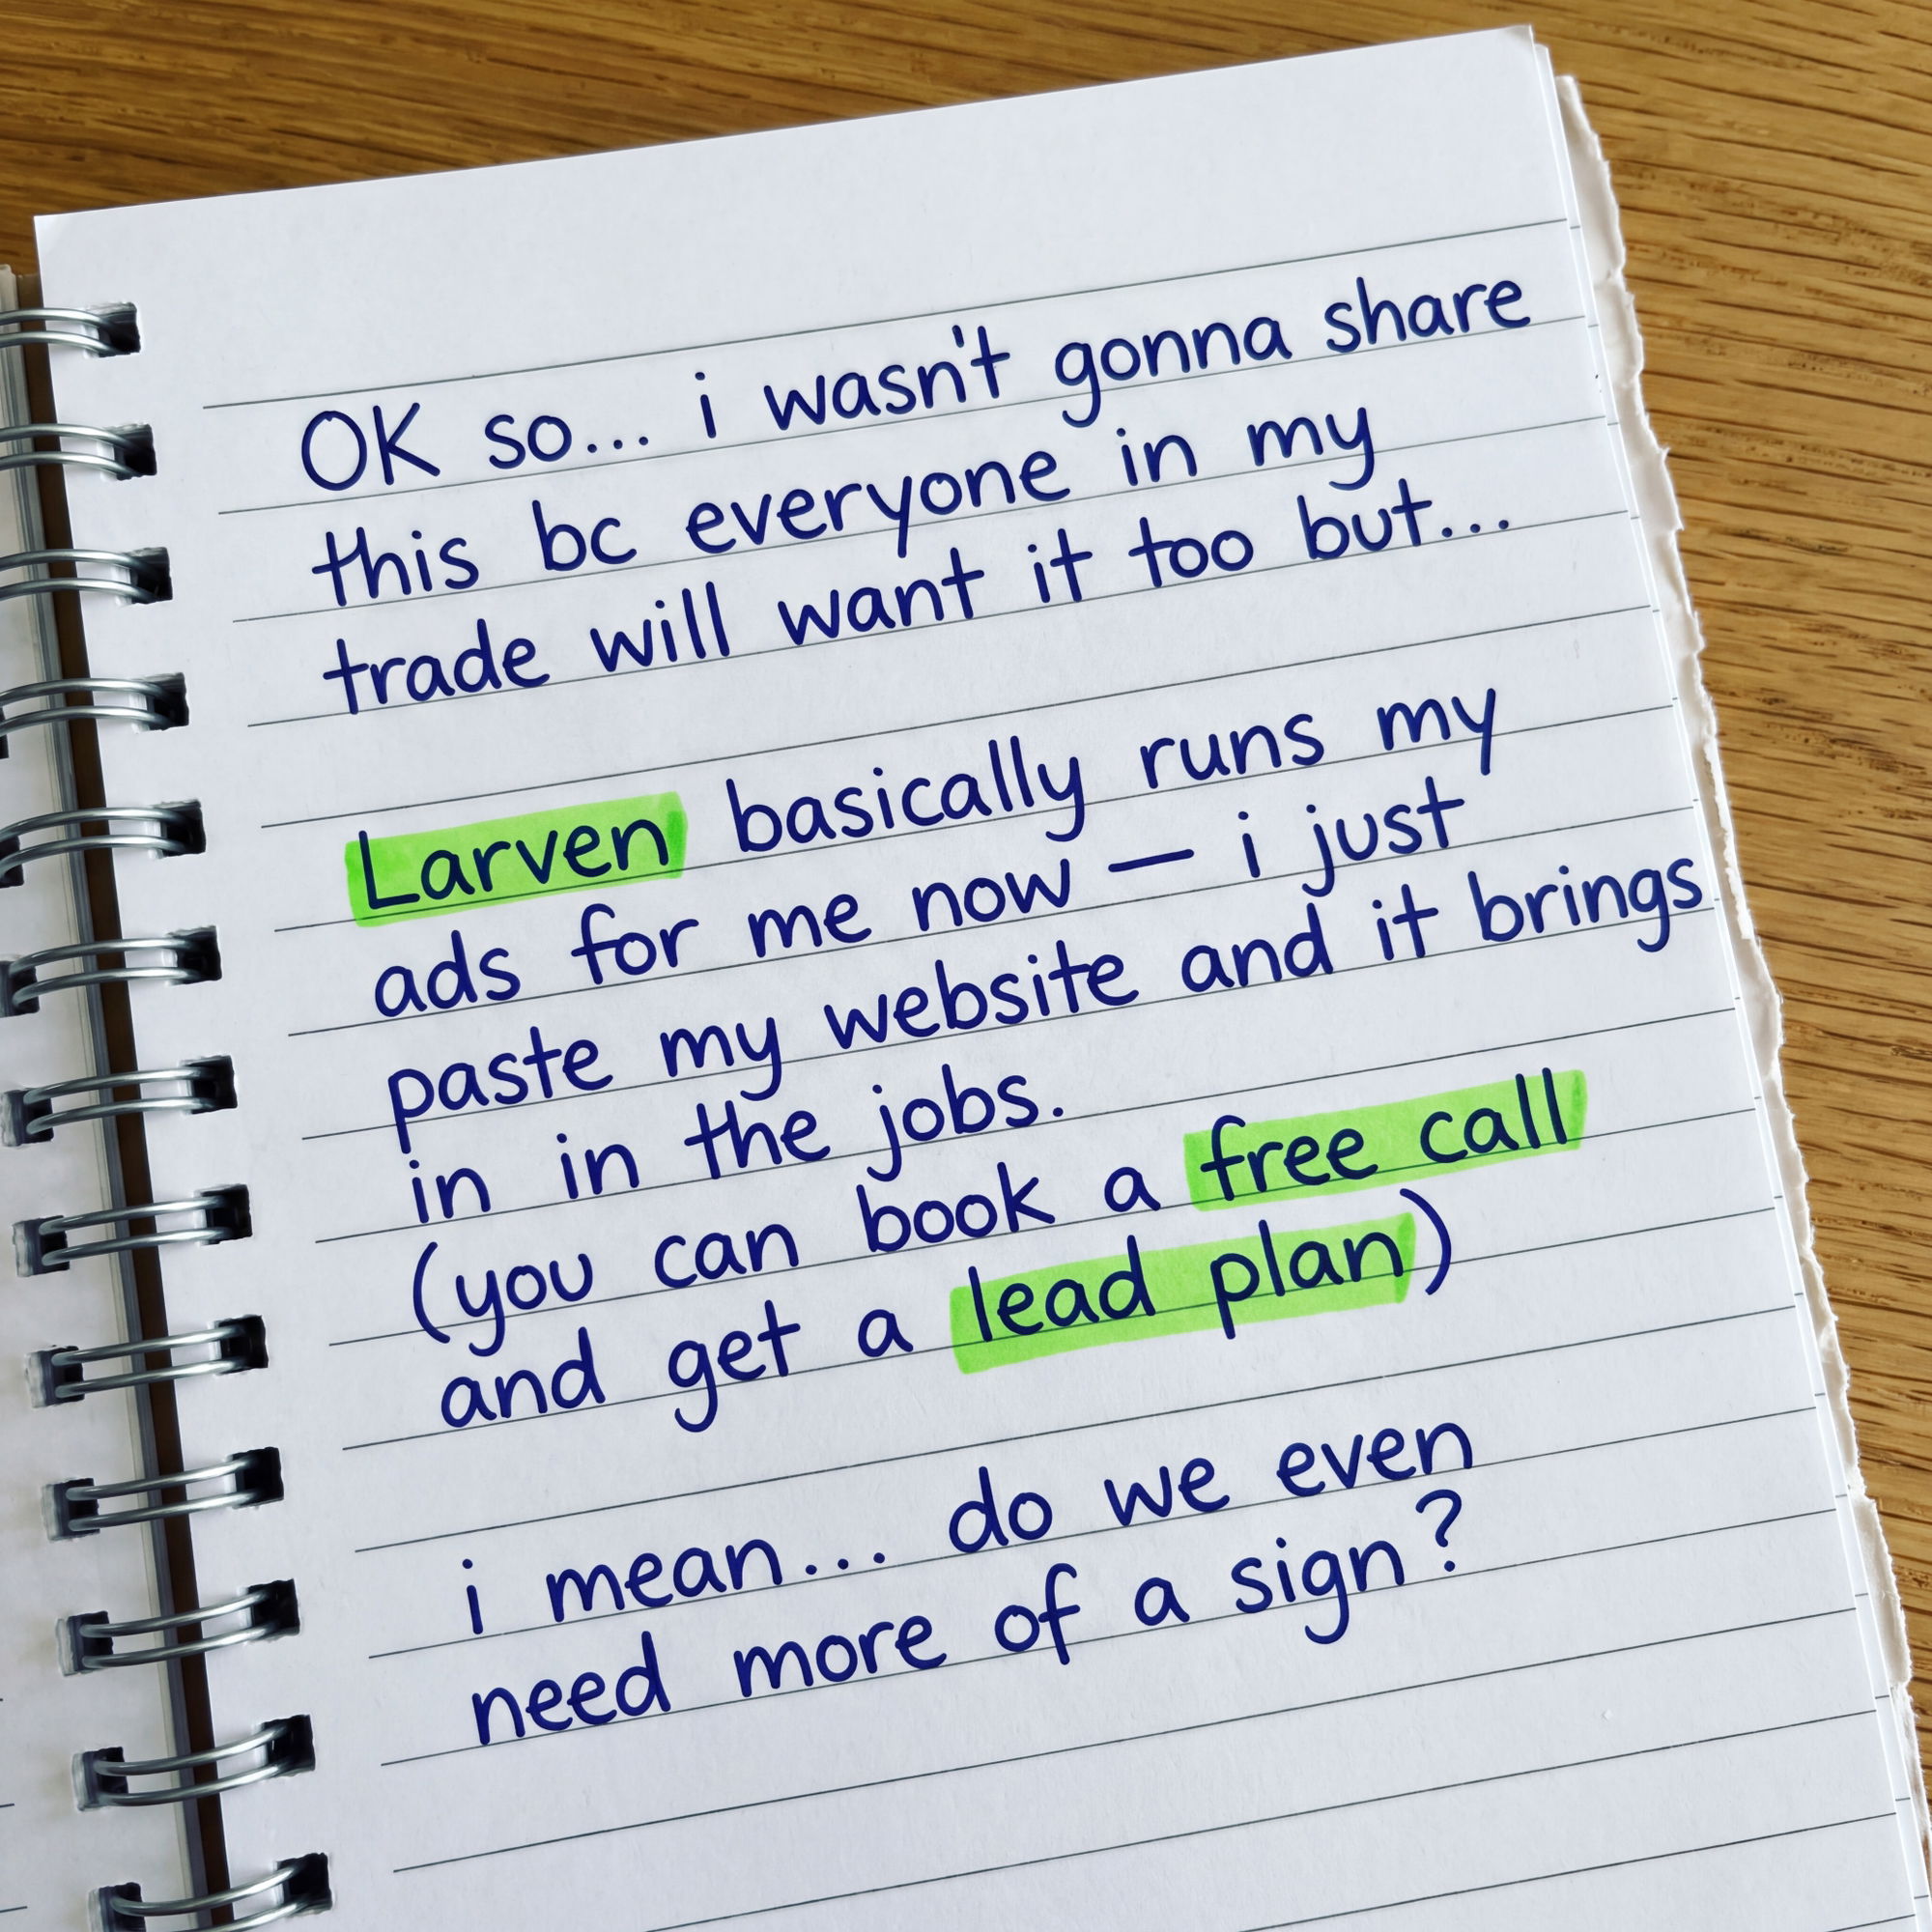 OK so... i wasn't gonna share
this bc everyone in my
trade will want it too but...
Larven basically runs my
ads for me now — i just
paste my website and it brings
in in the jobs.
(you can book a free call
and get a lead plan)
i mean... do we even
need more of a sign?